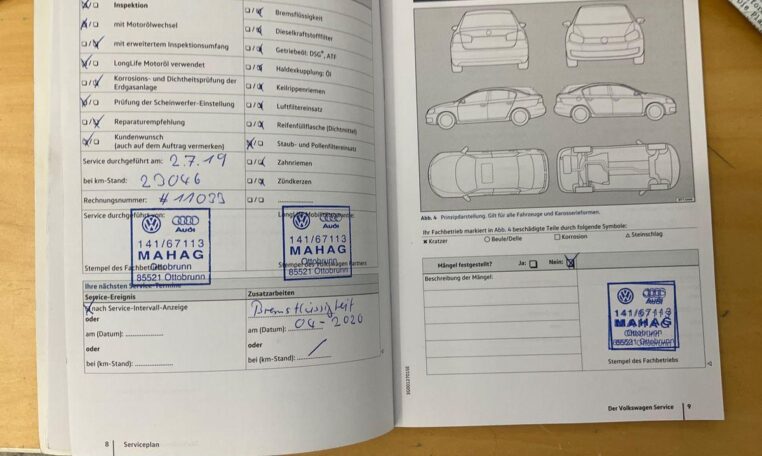 Inspektion
mit Motorölwechsel
mit erweitertem Inspektionsumfang
LongLife Motoröl verwendet
Korrosions- und Dichtheitsprüfung der
Erdgasanlage
Prüfung der Scheinwerfer-Einstellung
Reparaturempfehlung
Kundenwunsch
(auch auf dem Auftrag vermerken)
Bremsflüssigkeit
Dieselkraftstofffilter
Getriebeöl: DSG®, ATF
Haldexkupplung: Öl
Keilrippenriemen
Luftfiltereinsatz
Reifenfüllflasche (Dichtmittel)
Staub- und Pollenfiltereinsatz
Zahnriemen
Zündkerzen
Service durchgeführt am: 2.7.19
bei km-Stand: 29046
Rechnungsnummer: #11039
Service durchgeführt von:
Audi
141/67113
MAHAG
Ottobrunn
85521 Ottobrunn
Stempel des Fachbetriebs
Audi
141/67113
MAHAG
Ottobrunn
85521 Ottobrunn
Stempel des Volkswagen Partners
Ihre nächsten Service-Termine
Service-Ereignis
nach Service-Intervall-Anzeige
oder
am (Datum):
oder
bei (km-Stand):
Zusatzarbeiten
Bremsflüssigkeit
04-2020
am (Datum):
oder
bei (km-Stand):
8 Serviceplan
Abb. 4 Prinzipdarstellung. Gilt für alle Fahrzeuge und Karosserieformen.
Ihr Fachbetrieb markiert in Abb. 4 beschädigte Teile durch folgende Symbole:
Kratzer Beule/Delle Korrosion Steinschlag
Mängel festgestellt? Ja: Nein:
Beschreibung der Mängel:
Audi
141/67113
MAHAG
Ottobrunn
85521 Ottobrunn
Stempel des Fachbetriebs
Der Volkswagen Service 9